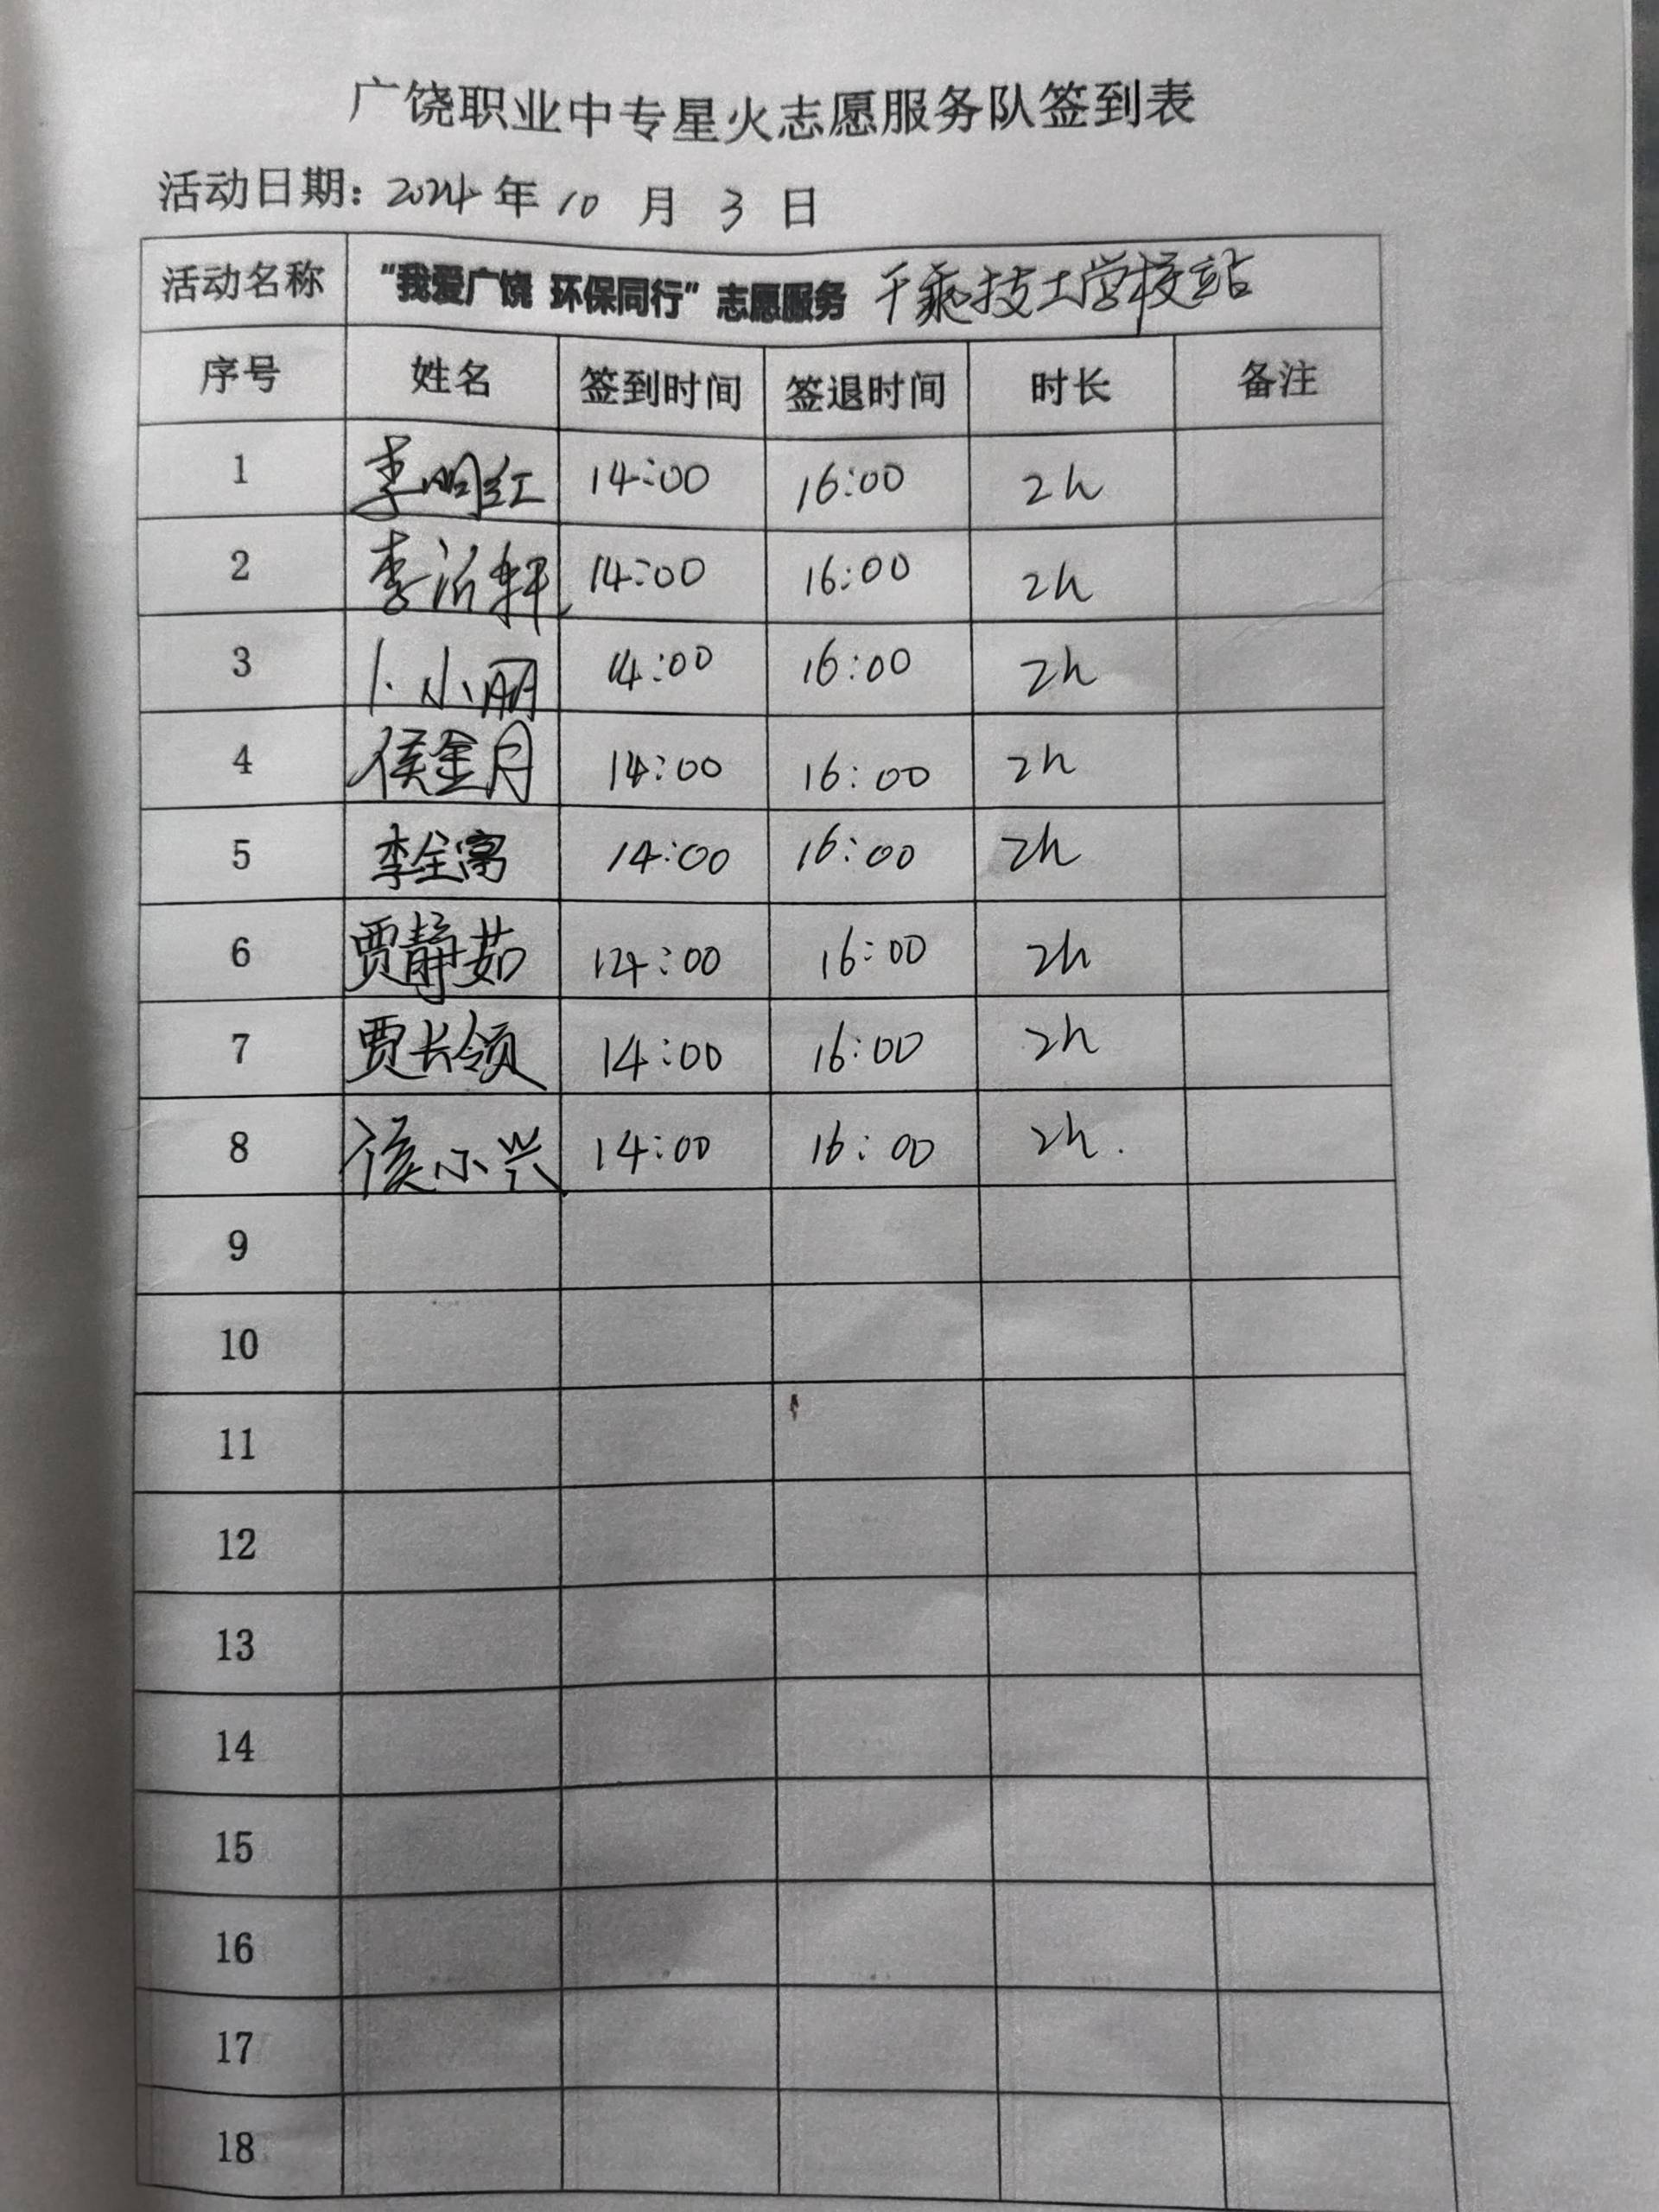 广饶职业中专星火志愿服务队签到表
活动日期：2024年 10 月 3 日
活动名称 “我爱广饶 环保同行”志愿服务 千乘技工学校站
序号 姓名 签到时间 签退时间 时长 备注
1 李明红 14:00 16:00 2h
2 李沂轩 14:00 16:00 2h
3 卜小丽 14:00 16:00 2h
4 侯金月 14:00 16:00 2h
5 李全富 14:00 16:00 2h
6 贾静茹 14:00 16:00 2h
7 贾长领 14:00 16:00 2h
8 侯小兴 14:00 16:00 2h.
9
10
11
12
13
14
15
16
17
18